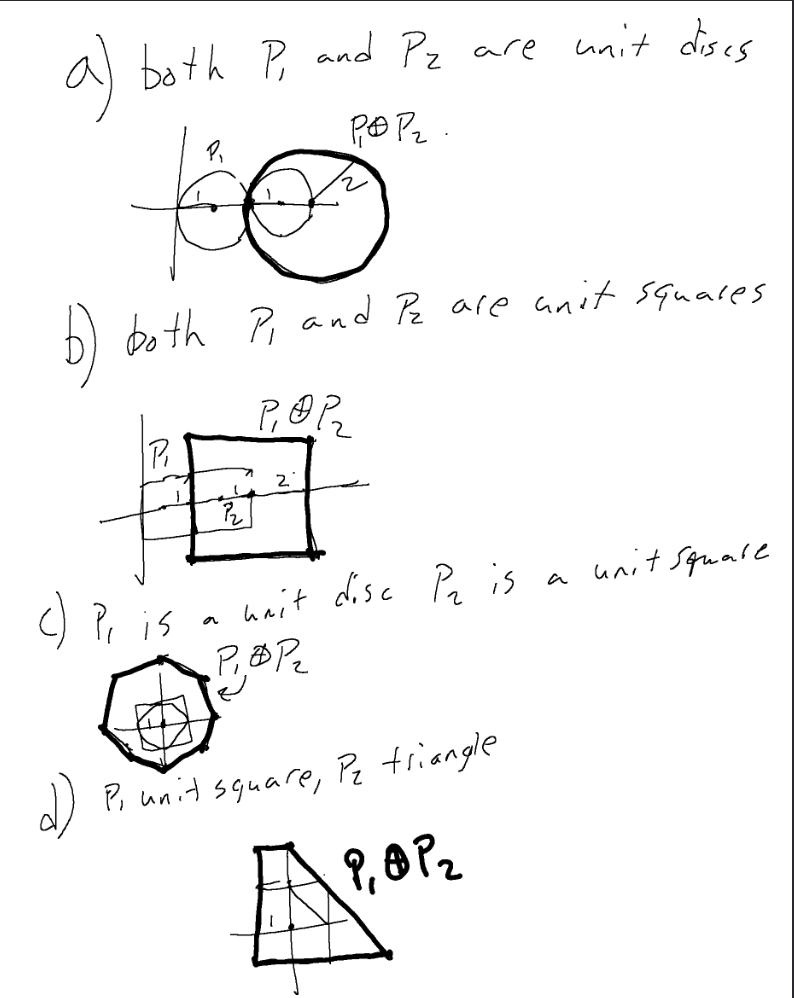 a) both P₁ and P₂ are unit discs
P₁⊕P₂.
P₁
1 1 2
b) both P₁ and P₂ are unit squares
P₁⊕P₂
P₁
1 1 2
P₂
c) P₁ is a unit disc P₂ is a unit square
P₁⊕P₂
1
d) P₁ unit square, P₂ triangle
P₁⊕P₂
1